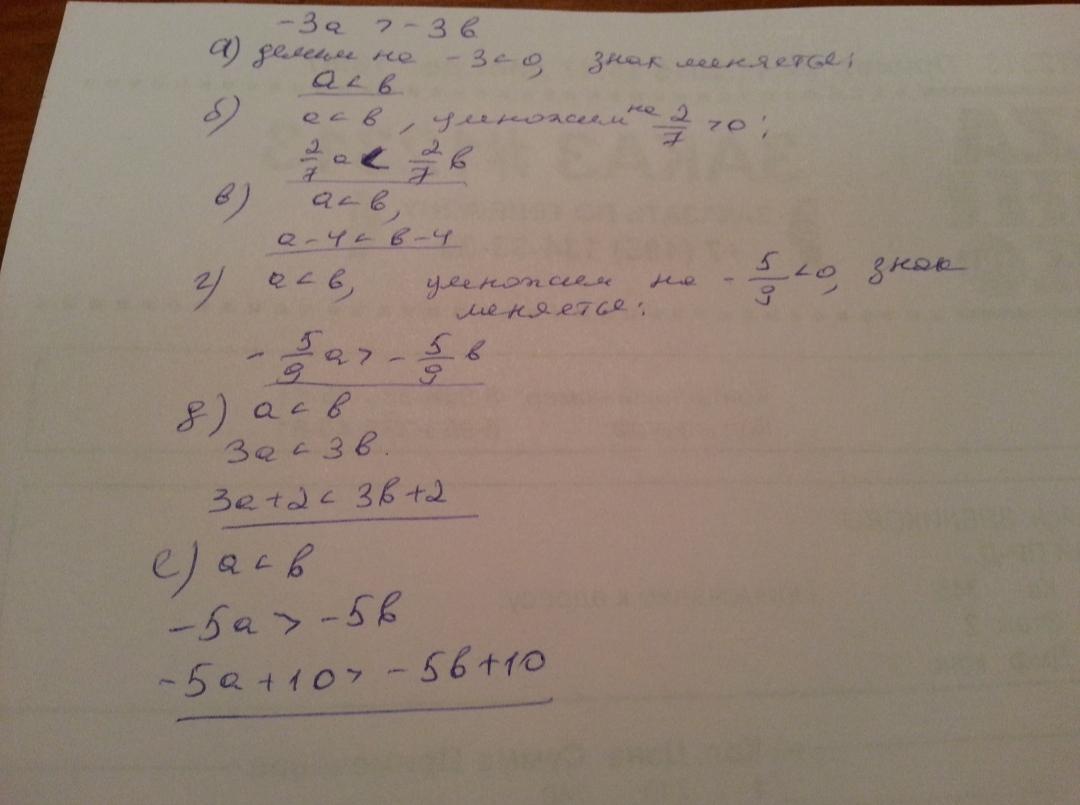 -3a > -3в
а) делим на -3<0, знак меняеться:
a < в
б) a < в, умножим на 2/7 >0;
2/7 a < 2/7 в
в) a < в,
a-4 < в-4
г) a < в, умножим на -5/9 <0, знак
меняеться:
-5/9 a > -5/9 в
д) a < в
3a < 3в.
3a+2 < 3в+2
е) a < в
-5a > -5в
-5a+10 > -5в+10